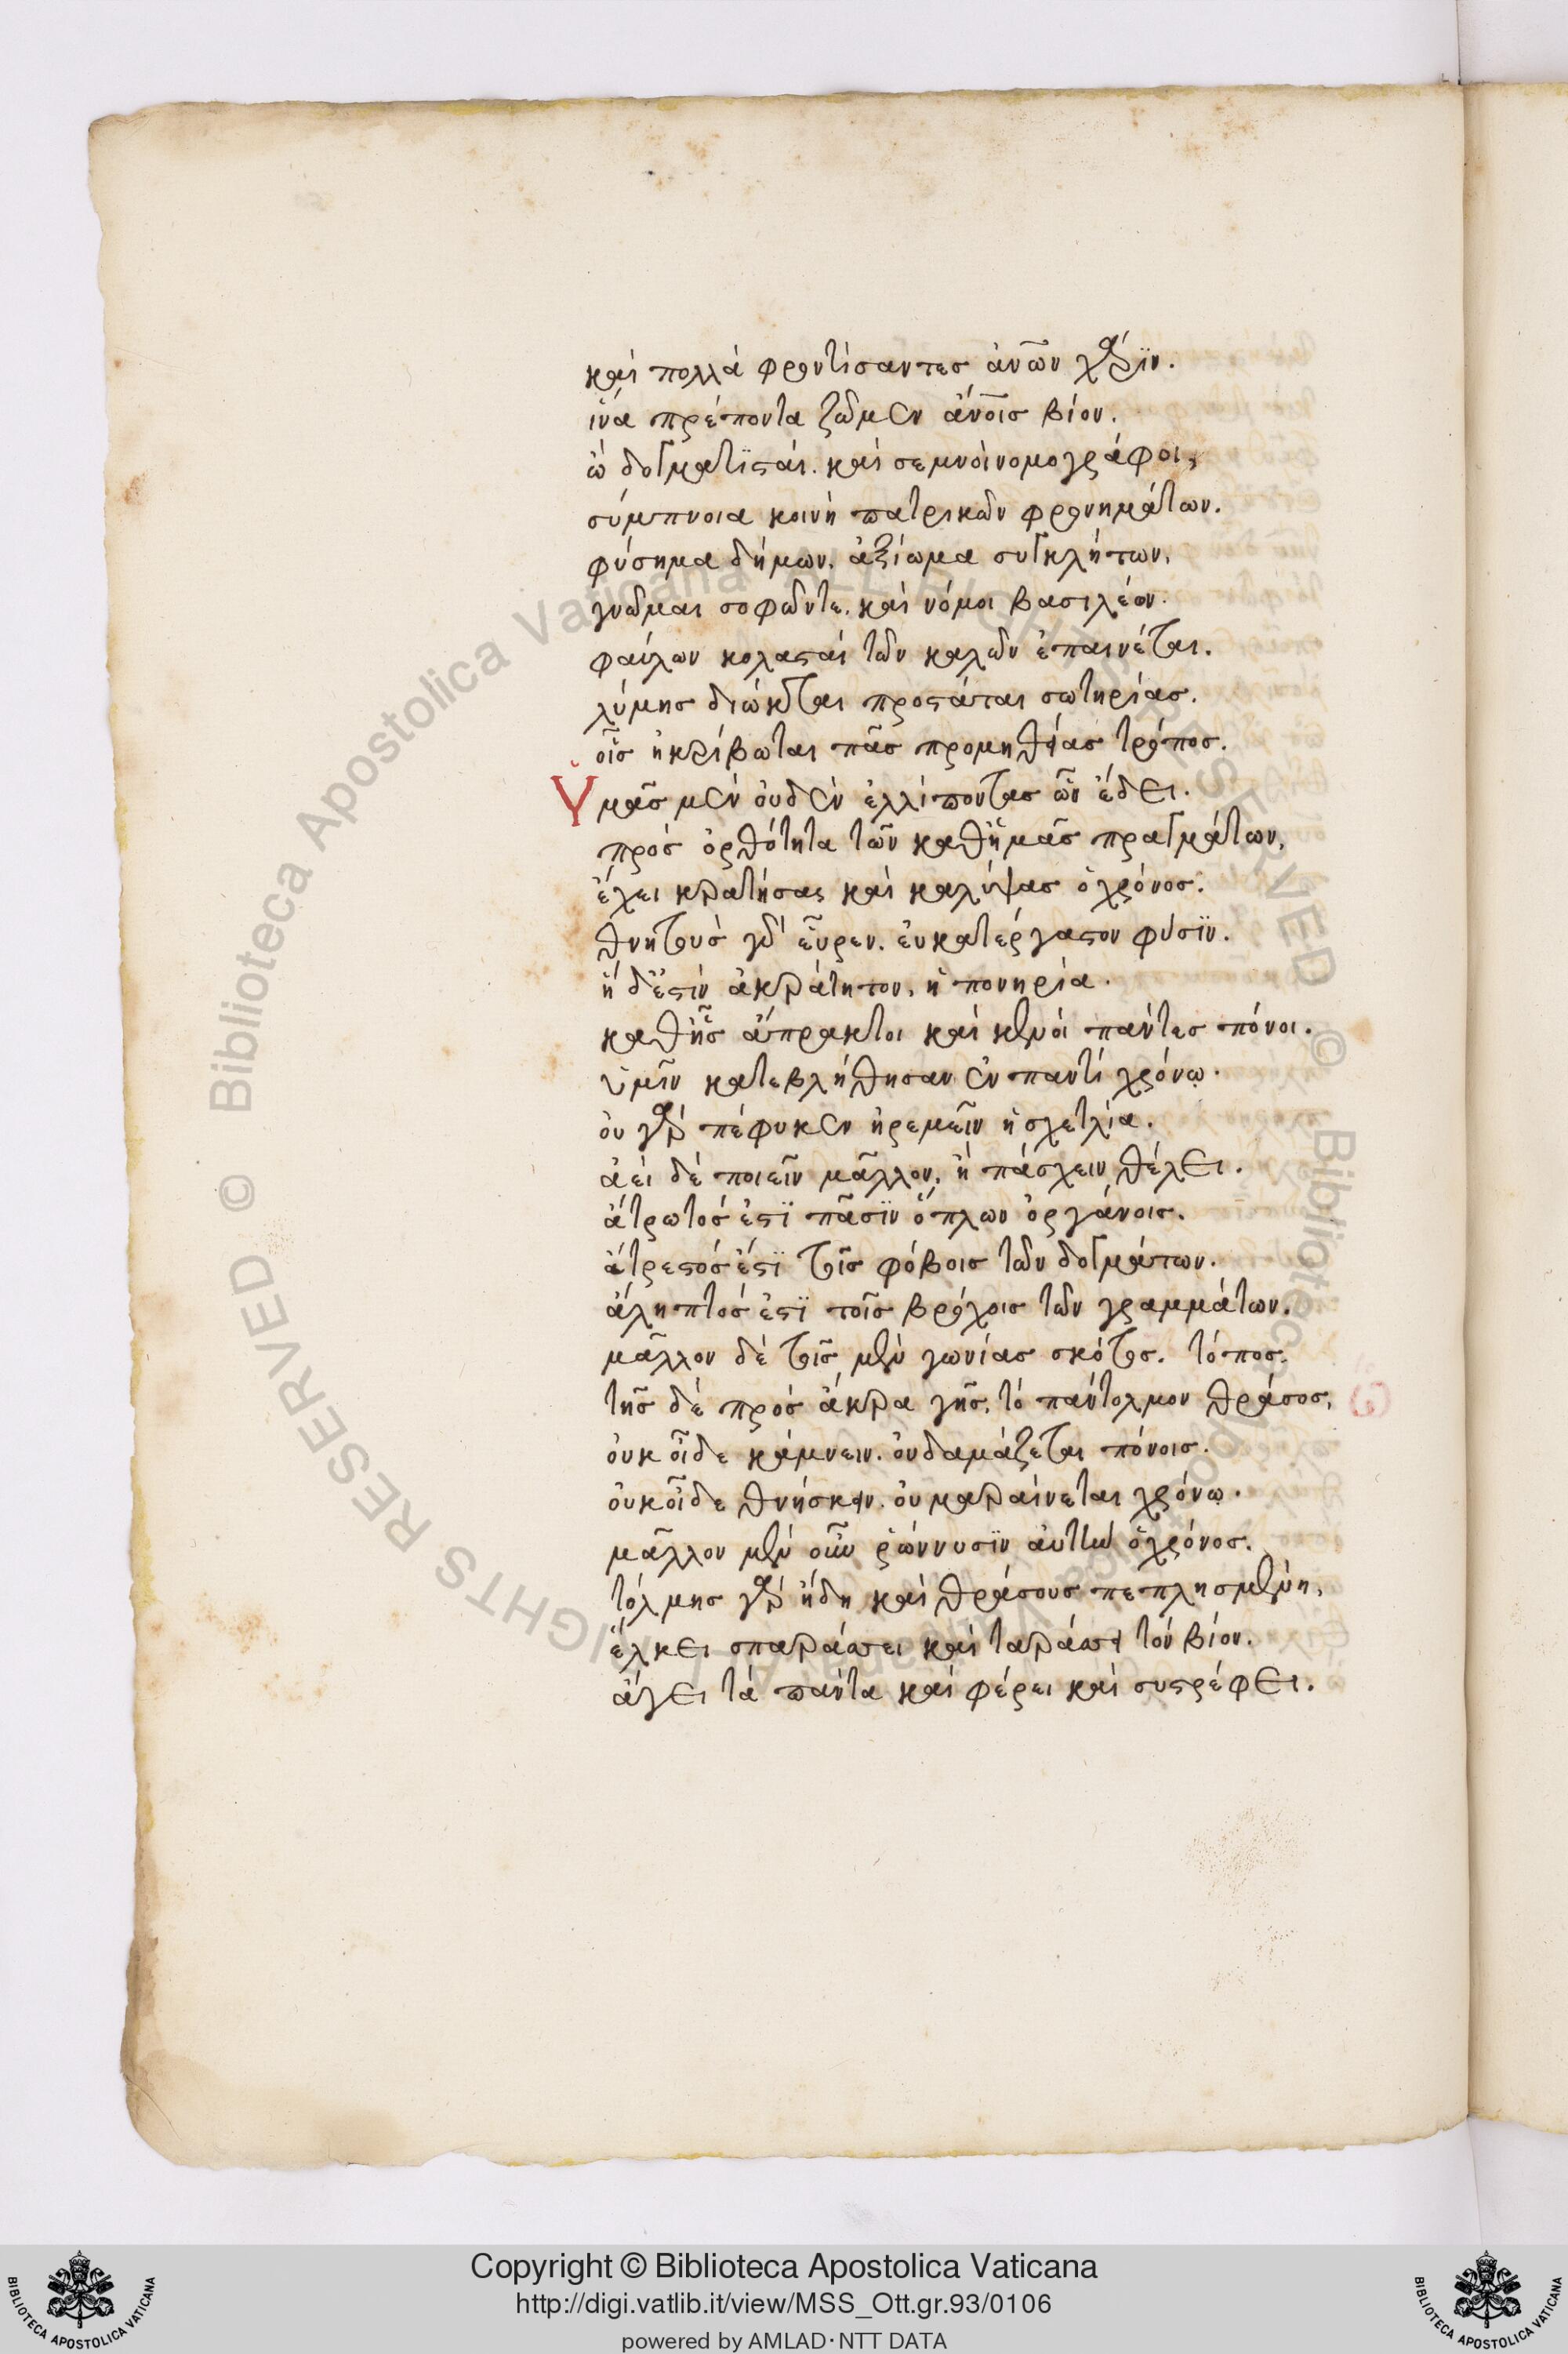 καὶ πολλὰ φροντίσαντες ἀν͞ων χάριν.
ἵνα πρέποντα ζῶμεν ἀν͞οις βίον.
ὦ δογματισταὶ. καὶ σεμνοὶ νομογράφοι,
σύμπνοια κοινὴ πατρικῶν φρονημάτων.
φύσημα δήμων. ἀξίωμα συγκλήτων,
γνῶμαι σοφῶντε. καὶ νόμοι βασιλέων.
φαύλων κολασταὶ τῶν καλῶν ἐπαινέται.
λύμης διώκται προστάται σωτηρίας.
οἷς ἠκρίβωται πᾶς προμηθείας τρόπος.
Ὑμᾶς μὲν οὐδὲν ἐλλίποντας ὧν ἔδει.
πρὸς ὀρθότητα τῶν καθἡμᾶς πραγμάτων,
ἔχει κρατήσας καὶ καλύψας ὁ χρόνος.
θνητοὺς γὰρ εὗρεν. εὐκατέργαστον φύσϊν.
ἣ δἔστιν ἀκράτητον, ἡ πονηρία.
καθἧς ἄπρακτοι καὶ κενοὶ πάντες πόνοι.
ὑμῖν κατεβλήθησαν ἐν παντὶ χρόνῳ.
οὐ γὰρ πέφυκεν ἠρεμεῖν ἡ σχετλία.
ἀεὶ δὲ ποιεῖν μᾶλλον, ἢ πάσχειν θέλει.
ἄτρωτός ἐστϊ πᾶσϊν ὅπλων ὀργάνοις.
ἄτρεστός ἐστϊ τοῖς φόβοις τῶν δογμάτων.
ἄληπτός ἐστϊ τοῖς βρόχοις τῶν γραμμάτων.
μᾶλλον δὲ τοῖς μὲν γωνίας σκότος. τόπος.
τῆς δὲ πρὸς ἄκρα γῆς. τὸ πάντολμον θράσος,
οὐκ οἶδε κάμνειν. οὐ δαμάζεται πόνοις.
οὐκ οἶδε θνήσκειν. οὐ μαραίνεται χρόνῳ.
μᾶλλον μὲν οὖν ῥώννυσϊν αὐτὴν ὁ χρόνος.
τόλμης γὰρ ἤδη καὶ θράσους πεπλησμένη,
ἕλκει σπαράσσει καὶ ταράσσει τὸν βίον.
ἄγει τὰ πάντα καὶ φέρει καὶ συστρέφει.
Copyright © Biblioteca Apostolica Vaticana
http://digi.vatlib.it/view/MSS_Ott.gr.93/0106
powered by AMLAD · NTT DATA
BIBLIOTECA APOSTOLICA VATICANA
BIBLIOTECA APOSTOLICA VATICANA
© Biblioteca Apostolica Vaticana ALL RIGHTS RESERVED © Biblioteca Apostolica Vaticana ALL RIGHTS RESERVED